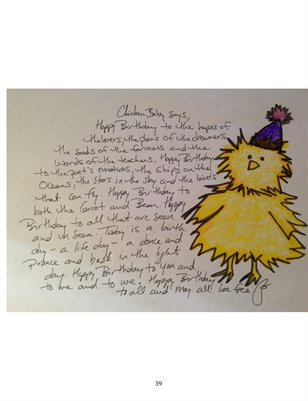 Chicken Baby says,
Happy Birthday to the hopes of
the lovers, the plans of the dreamers,
the seeds of the farmers and the
words of the teachers. Happy Birthday
to the poet's emotions, the ships on the
Oceans, the stars in the sky and the birds
that can fly. Happy Birthday to
both the Carrot and Bean. Happy
Birthday to all that are seen
and un seen. Today is a birth
day - a life day - a dance and
prance and bask in the light
day. Happy Birthday to you and
to me and to we. Happy Birthday
to all and may all be free
39